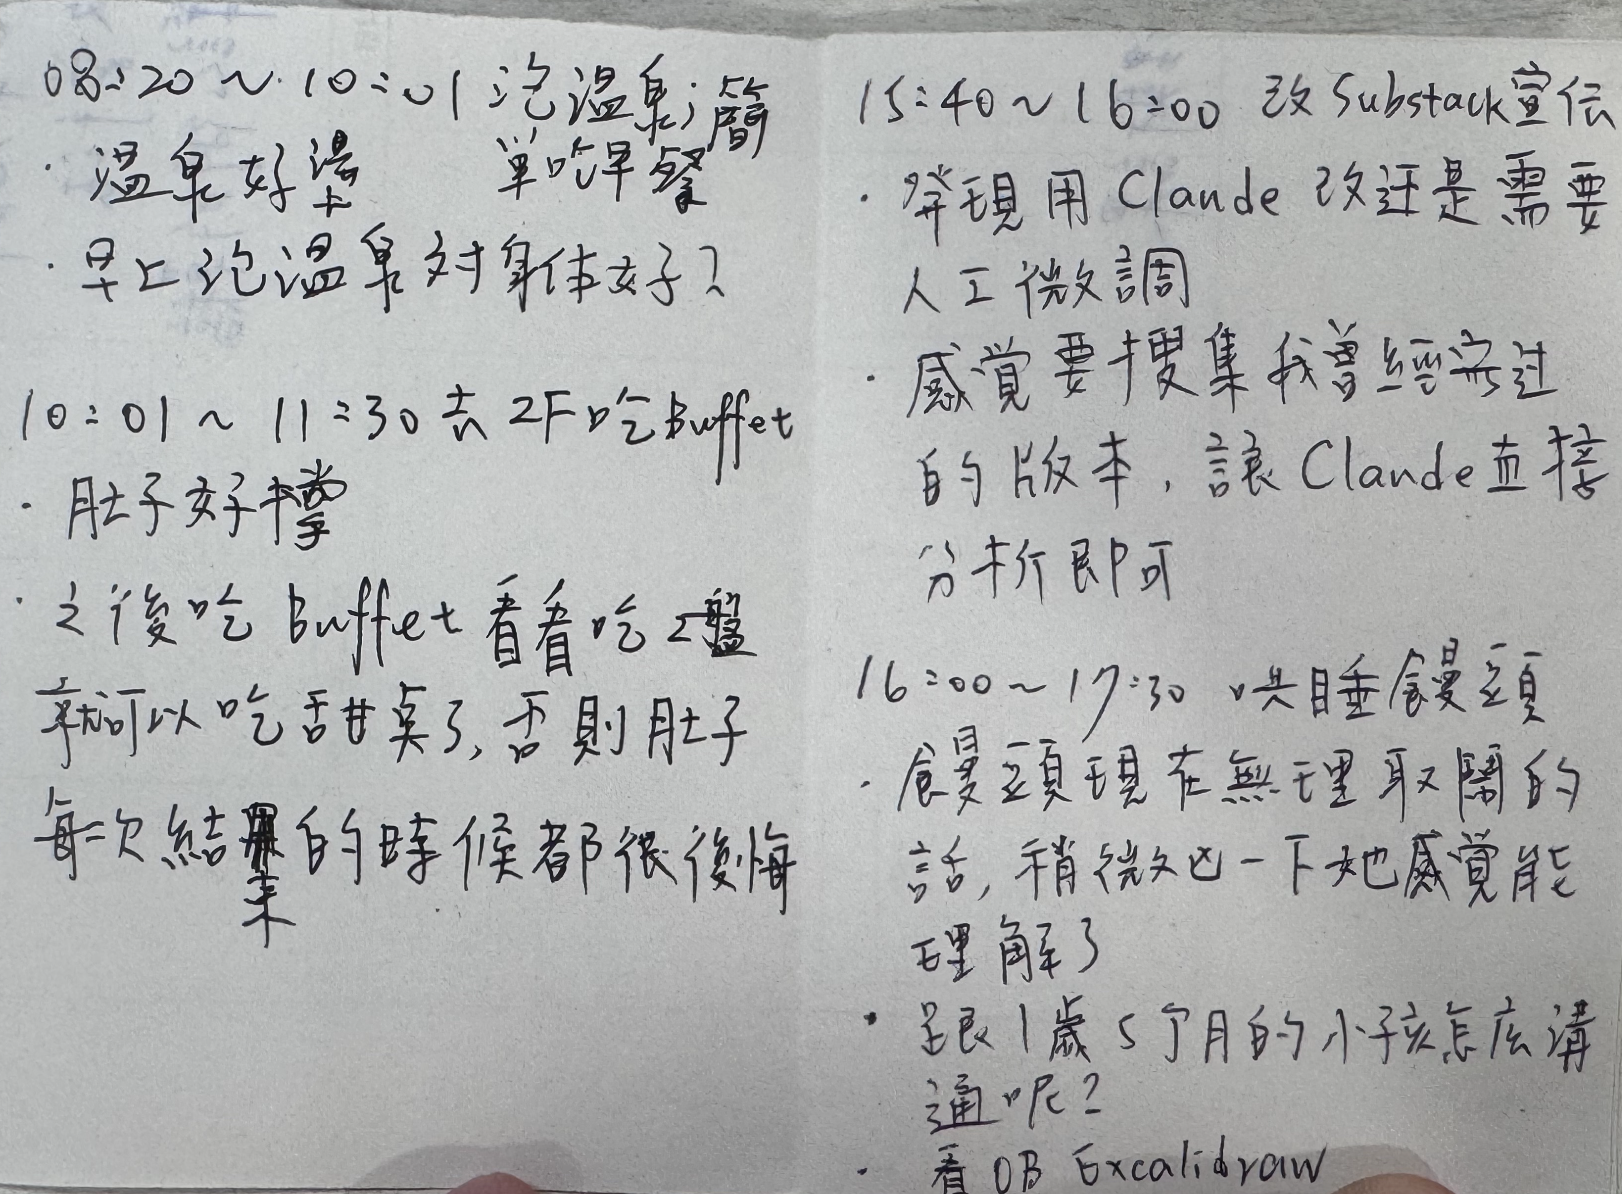 08:20～10:01 泡溫泉;簡
單吃早餐
· 溫泉好燙
· 早上泡溫泉对身体好?
10:01～11:30 去2F吃Buffet
· 肚子好撐
· 之後吃Buffet看看吃2盤
就可以吃甜點了,否則肚子
每次結束的時候都很後悔
15:40～16:00 改Substack宣伝
· 發現用Claude改还是需要
人工微調
· 感覺要搜集我曾經寫过
的版本,讓Claude直接
分析即可
16:00～17:30 哄睡饅頭
· 饅頭現在無理取鬧的
話,稍微凶一下她感覺能
理解了
· 跟1歲5个月的小孩怎么溝
通呢?
· 看OB Excalidraw